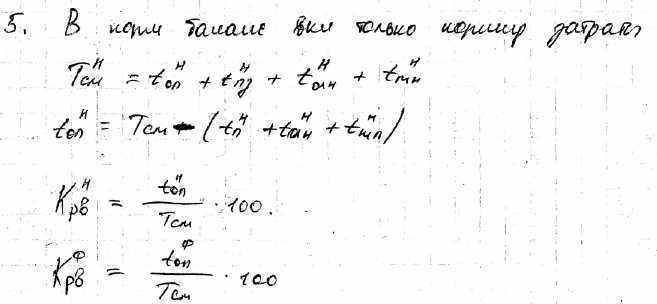 5. В норм балансе вкл только нормир затраты
Tсм^н = tоп^н + tпз^н + tотн^н + tтп^н
tоп^н = Tсм - (tп^н + tотн^н + tтп^н)
Kрв^н = tоп^н / Tсм · 100.
Kрв^ф = tоп^ф / Tсм · 100